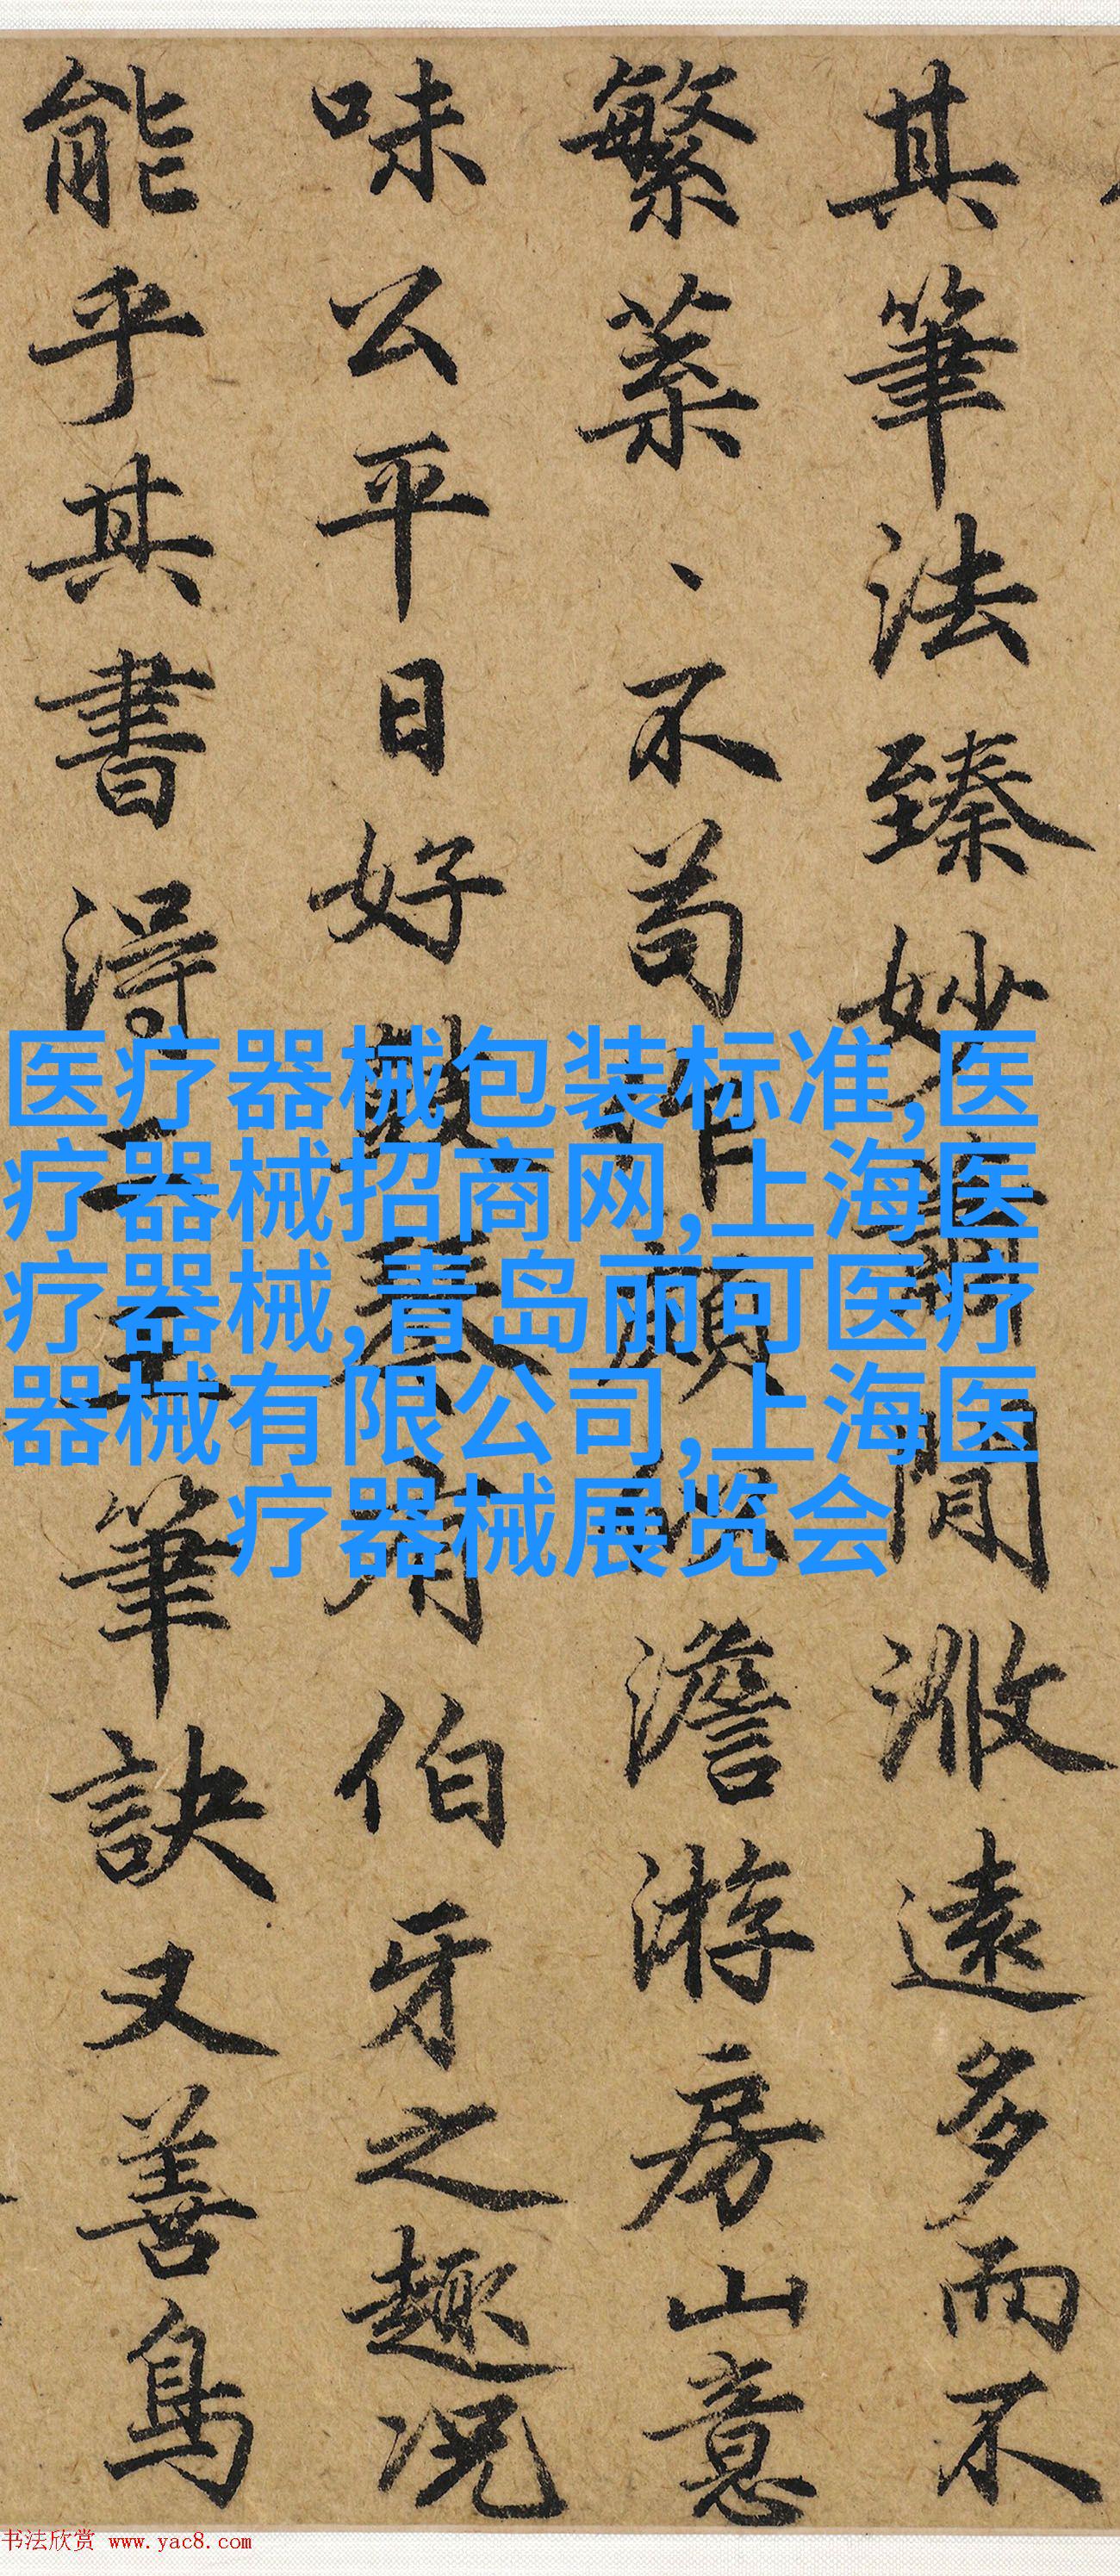 其筆法臻妙閒遠多而不
繁葉、、不苟作頗似澹游房山意
味公平日好鼓琴有伯牙之趣況
能乎其書淂二王筆訣又善鳥
医疗器械包装标准,医
疗器械招商网,上海医
疗器械,青岛丽可医疗
器械有限公司,上海医
疗器械展览会
书法欣赏 www.yac8.com